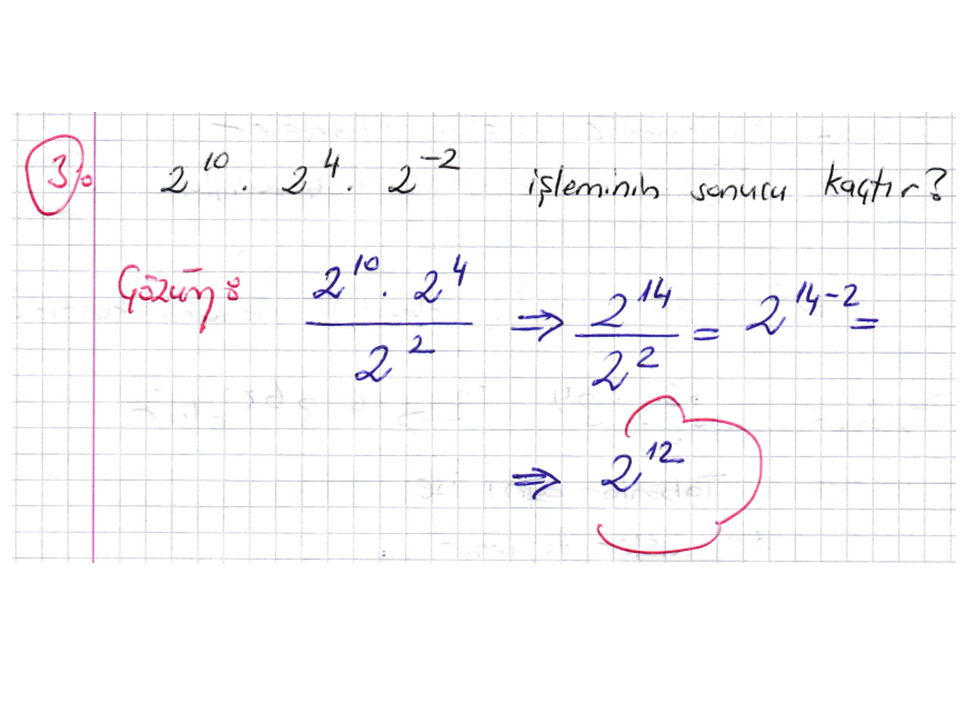 3) 2^10 . 2^4 . 2^-2 işleminin sonucu kaçtır?
Çözüm: (2^10 . 2^4) / 2^2 ⇒ 2^14 / 2^2 = 2^14-2 =
⇒ 2^12